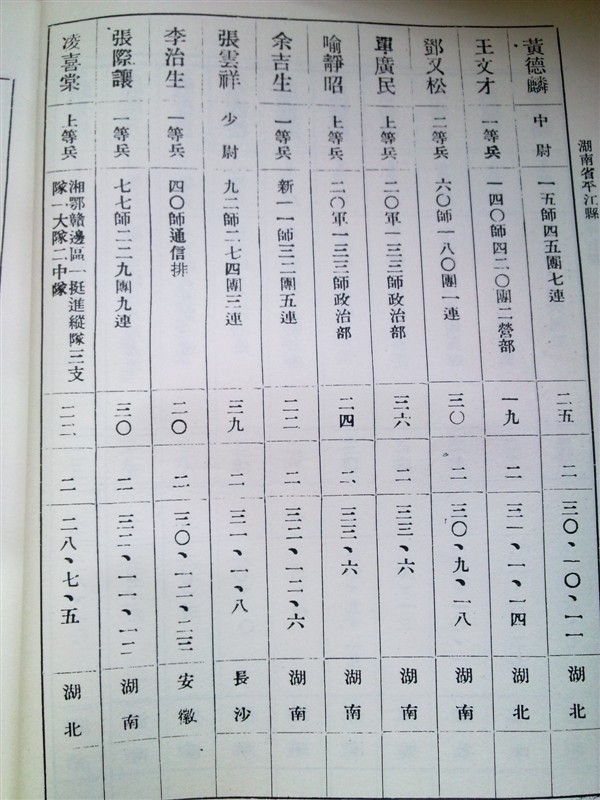 湖南省平江縣
黃德麟 中尉 一五師四五團七連 二五 二 三〇、一〇、一一 湖北
王文才 一等兵 一四〇師四二〇團二營部 一九 二 三一、一、一四 湖北
鄧又松 二等兵 六〇師一八〇團一連 三〇 二 三〇、九、一八 湖南
單廣民 上等兵 二〇軍一三三師政治部 三六 二 三三、六 湖南
喻靜昭 上等兵 二〇軍一三三師政治部 二四 二 三三、六 湖南
余吉生 一等兵 新一一師三二團五連 二二 二 三二、一二、六 湖南
張雲祥 少尉 九二師二七四團三連 三九 二 三一、一、八 長沙
李治生 一等兵 四〇師通信排 二〇 二 三〇、一二、二三 安徽
張際讓 一等兵 七七師二二九團九連 三〇 二 三二、一一、一二 湖南
凌喜棠 上等兵 湘鄂贛邊區一挺進縱隊三支
隊一大隊二中隊 二二 二 二八、七、五 湖北